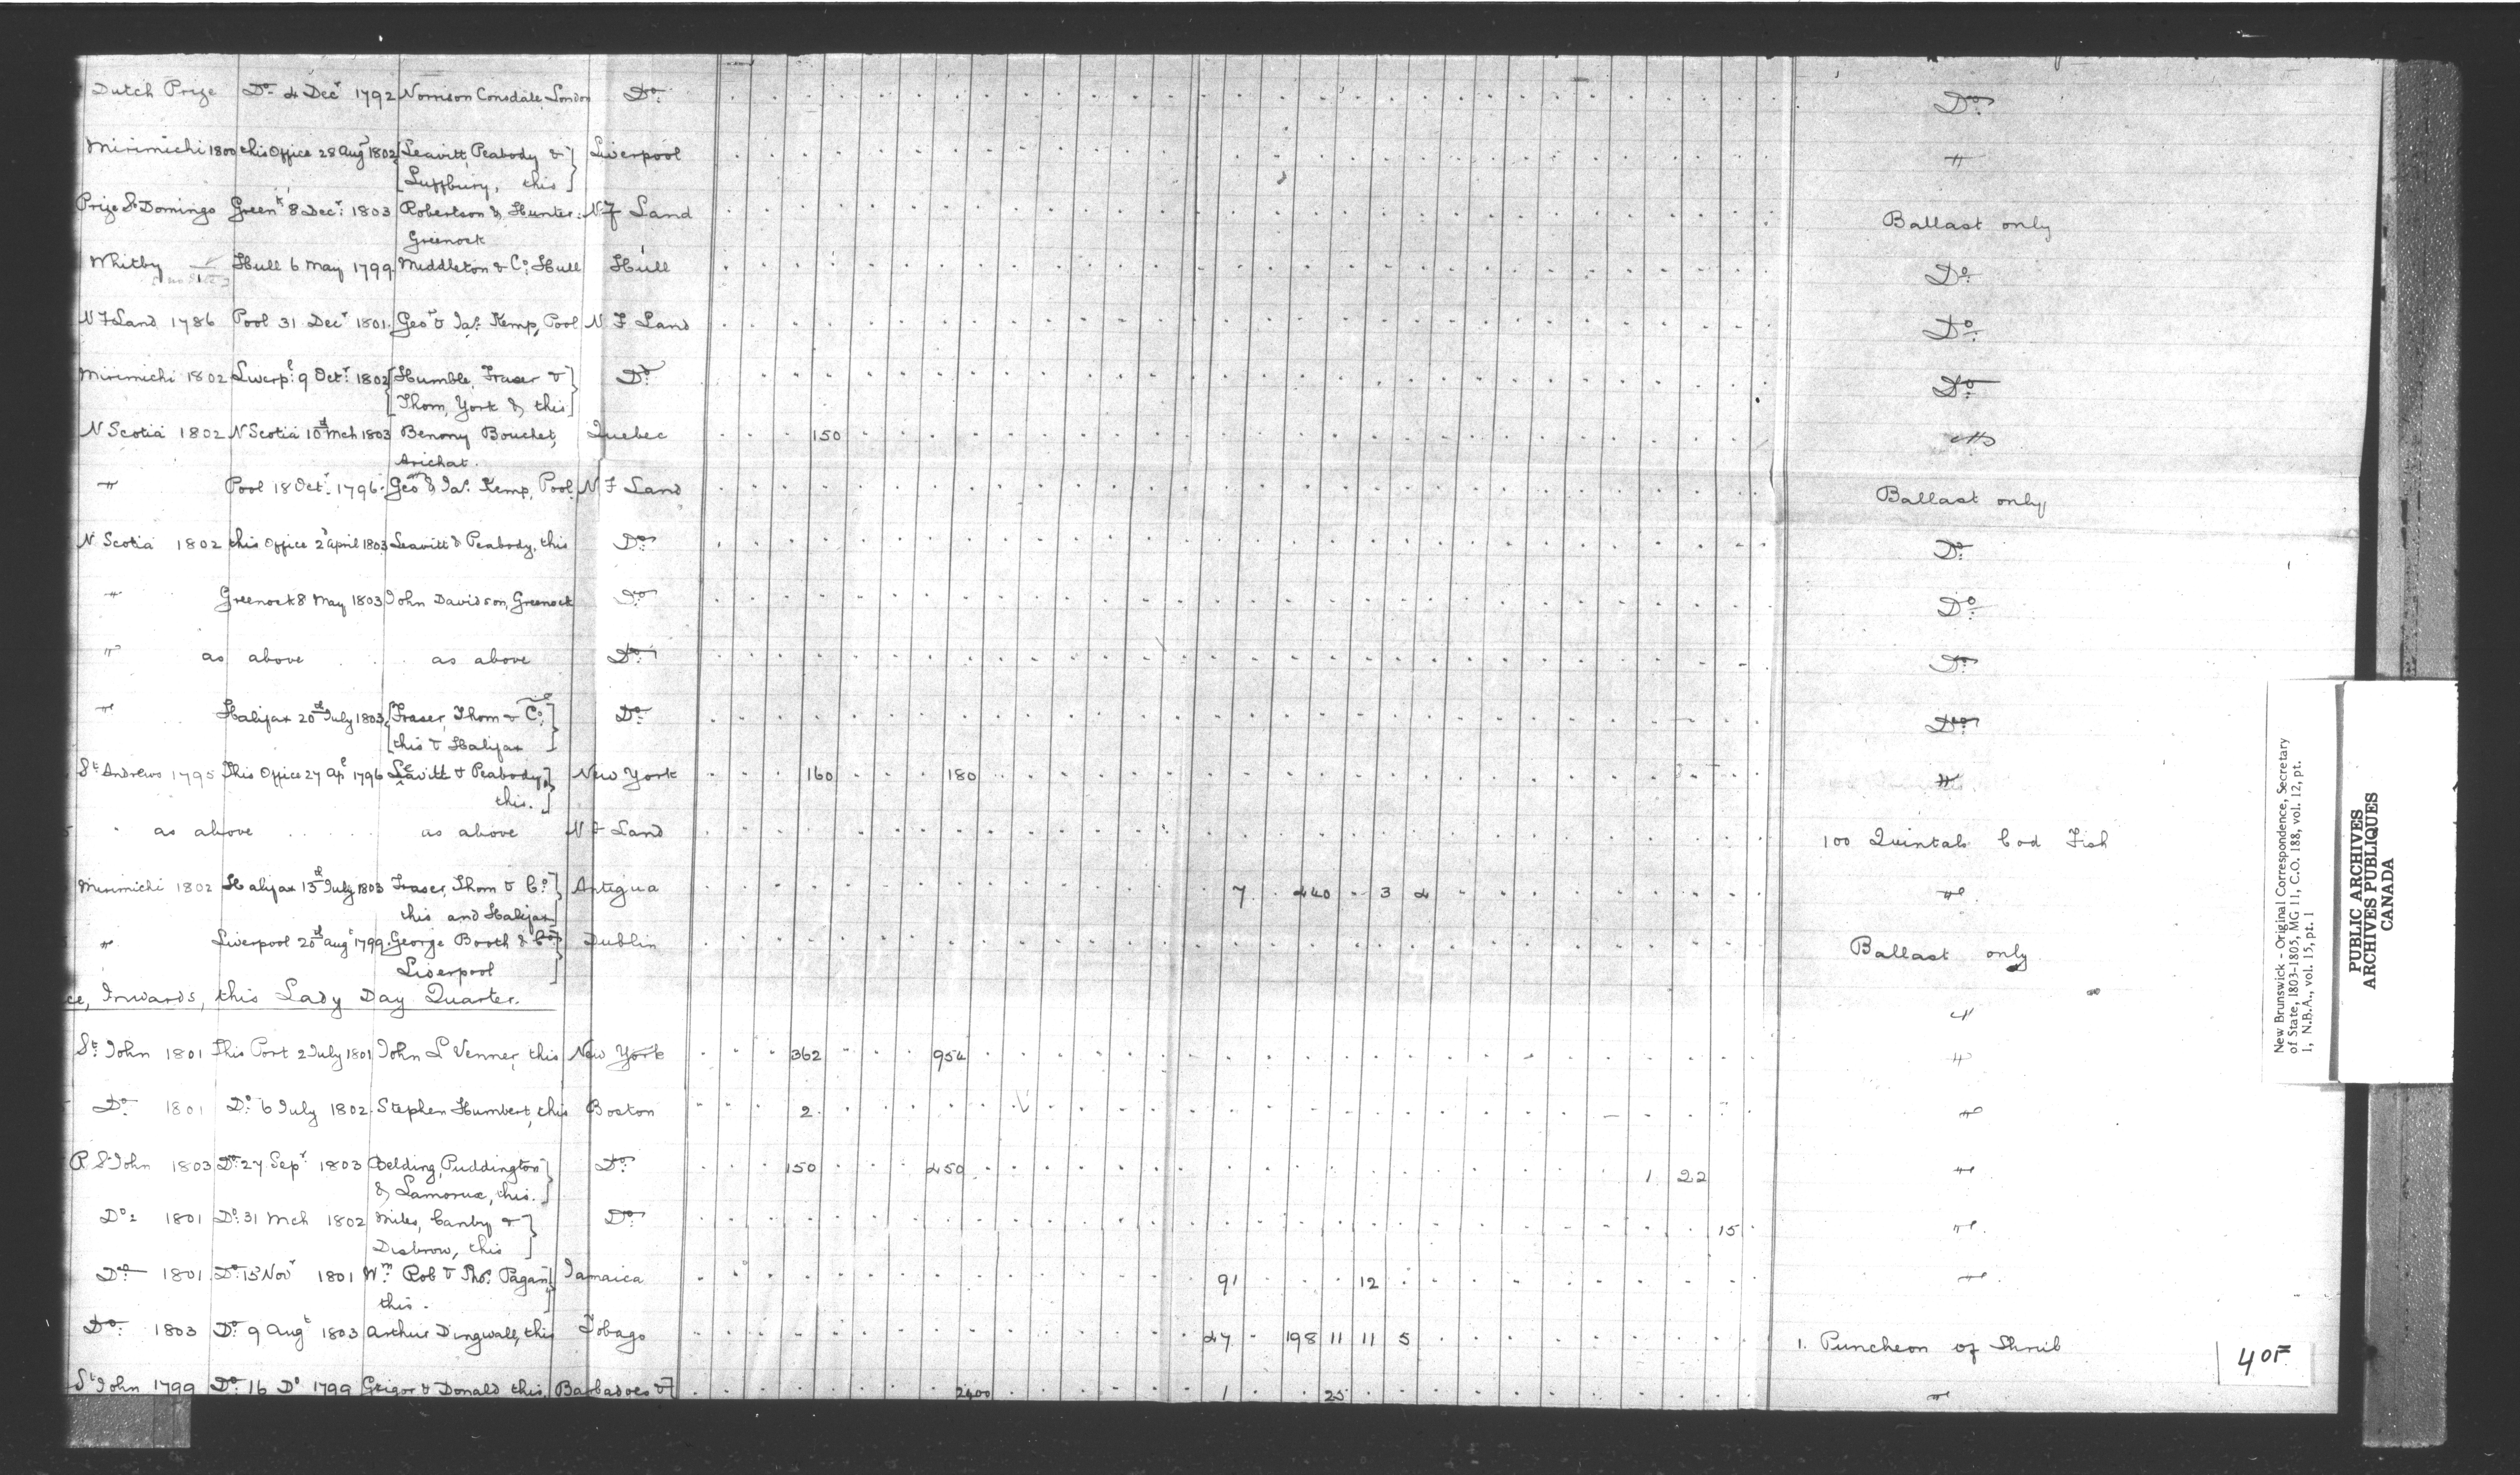 Dutch Prize Do 4 Decr 1792 Norrison Consdale, London Do Do
Mirimichi 1800 this Office 28 Augt 1802 Leavitt, Peabody & Liverpool "
Luffbury, this
Prize St Domingo Greenk 8 Decr 1803 Robertson & Hunter N F Land Ballast only
Greenock
Whitby Hull 6 May 1799 Middleton & Co Hull Hull Do
N F Land 1786 Pool 31 Decr 1801 Geo & Jas Kemp, Pool N F Land Do
Mirimichi 1802 Liverpl 9 Octr 1802 Humble, Fraser & Do Do
Thom, York & this
N Scotia 1802 N Scotia 10th Mch 1803 Benony Bouchet, Quebec 150 "
Arichat.
" Pool 18 Octr 1796 Geo & Jas Kemp, Pool N F Land Ballast only
N Scotia 1802 this Office 2 April 1803 Leavitt & Peabody, this Do Do
" Greenock 8 May 1803 John Davidson, Greenock Do Do
" as above as above Do Do
" Halifax 20th July 1803 Fraser, Thom & Co Do Do
this & Halifax
St Andrews 1795 This Office 27 Apl 1796 Leavitt & Peabody, New York 160 180 "
this.
as above as above N F Land 100 Quintals Cod Fish
Mirimichi 1802 Halifax 13th July 1803 Fraser, Thom & Co Antigua 7 440 3 4 "
this and Halifax
" Liverpool 20th Augt 1799 George Booth & Co Dublin Ballast only
Liverpool
ce, Inwards, this Lady Day Quarter. "
St John 1801 This Port 2 July 1801 John L Venner, this New York 362 954 "
Do 1801 Do 6 July 1802 Stephen Humbert, this Boston 2 "
R St John 1803 Do 27 Sepr 1803 Belding, Puddington Do 150 450 1 22 "
& Lamorux, this.
Do 1801 Do 31 Mch 1802 Miles, Canby & Do 15 "
Disbrow, this
Do 1801 Do 13 Novr 1801 Wm Rob & Thos Pagan Jamaica 91 12 "
this.
Do 1803 Do 9 Augt 1803 Arthur Dingwall, this Tobago 47 198 11 11 5 1. Puncheon of Shrub
St John 1799 Do 16 Do 1799 Grigor & Donald this Barbadoes & 2400 1 25 "
New Brunswick - Original Correspondence, Secretary
of State, 1803-1805, MG 11, C.O. 188, vol. 12, pt.
1, N.B.A., vol. 15, pt. 1
PUBLIC ARCHIVES
ARCHIVES PUBLIQUES
CANADA
40F